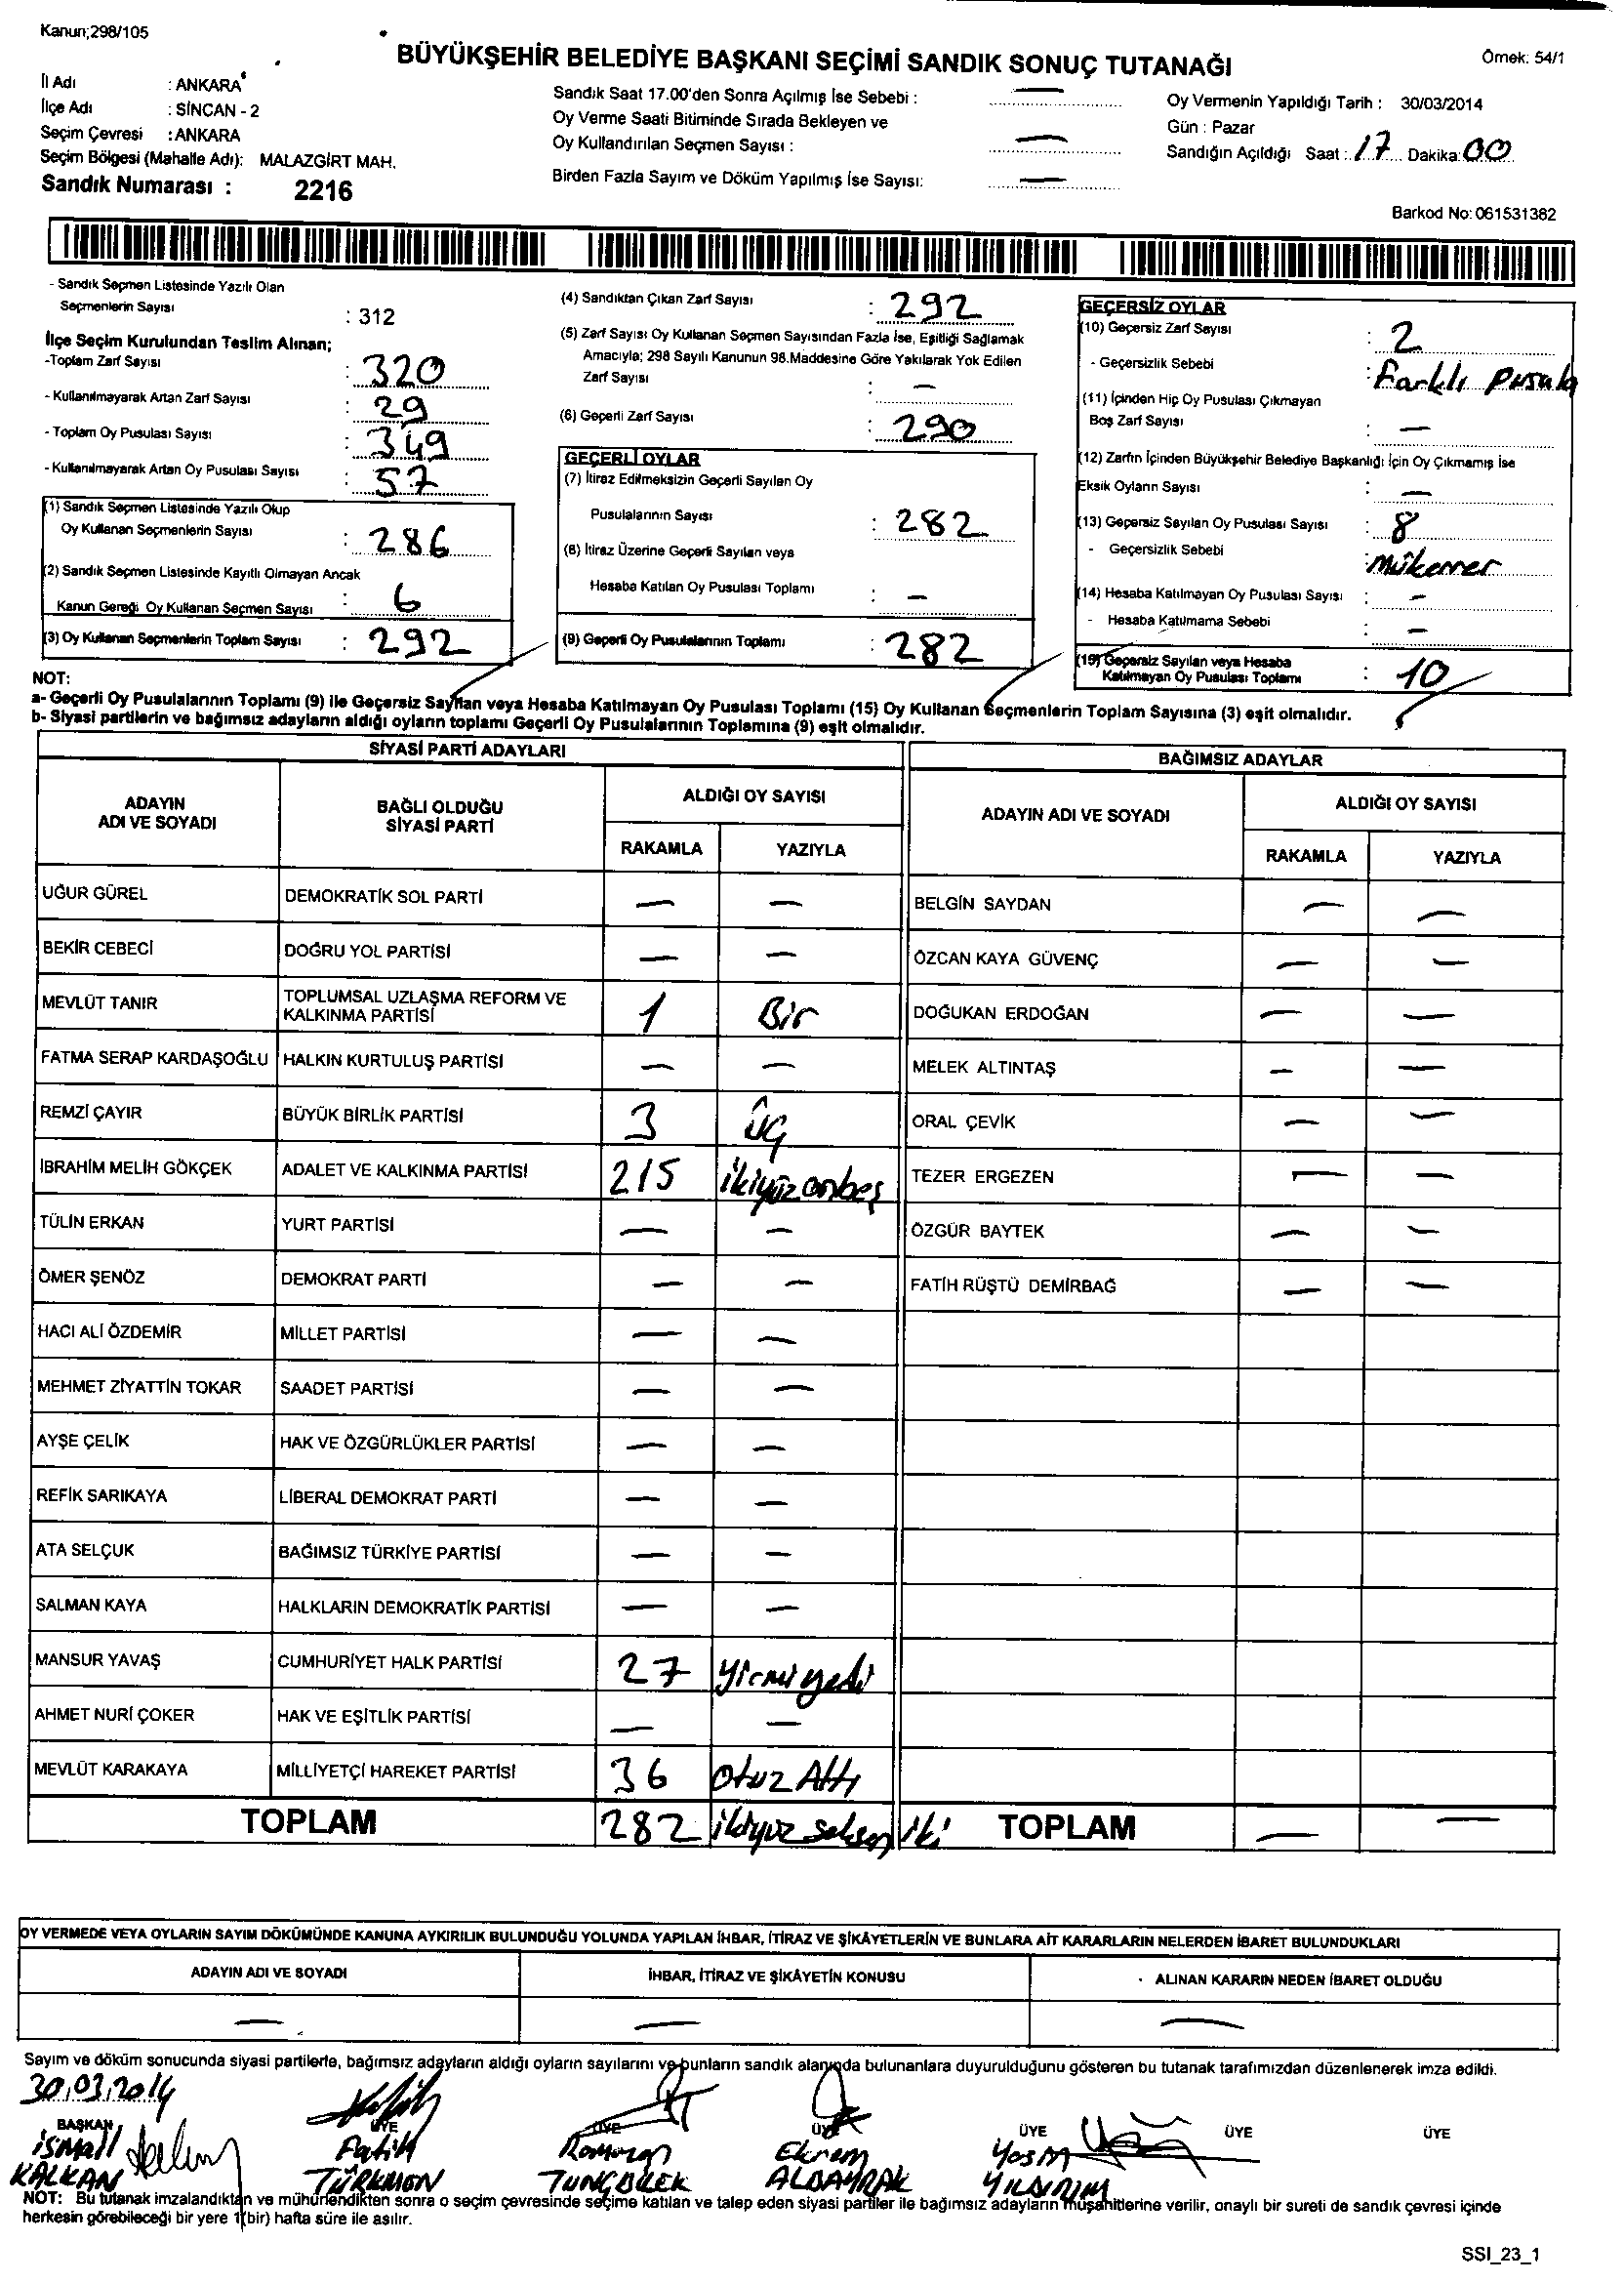 Kanun;298/105
BÜYÜKŞEHİR BELEDİYE BAŞKANI SEÇİMİ SANDIK SONUÇ TUTANAĞI
Örnek: 54/1
İl Adı : ANKARA
İlçe Adı : SİNCAN - 2
Seçim Çevresi : ANKARA
Seçim Bölgesi (Mahalle Adı): MALAZGİRT MAH.
Sandık Numarası : 2216
Sandık Saat 17.00'den Sonra Açılmış İse Sebebi : —
Oy Verme Saati Bitiminde Sırada Bekleyen ve
Oy Kullandırılan Seçmen Sayısı : —
Birden Fazla Sayım ve Döküm Yapılmış İse Sayısı: —
Oy Vermenin Yapıldığı Tarih : 30/03/2014
Gün : Pazar
Sandığın Açıldığı Saat : 17 Dakika: 00
Barkod No: 061531382
- Sandık Seçmen Listesinde Yazılı Olan
Seçmenlerin Sayısı : 312
İlçe Seçim Kurulundan Teslim Alınan;
-Toplam Zarf Sayısı : 320
- Kullanılmayarak Artan Zarf Sayısı : 29
- Toplam Oy Pusulası Sayısı : 349
- Kullanılmayarak Artan Oy Pusulası Sayısı : 57
(1) Sandık Seçmen Listesinde Yazılı Olup
Oy Kullanan Seçmenlerin Sayısı : 286
(2) Sandık Seçmen Listesinde Kayıtlı Olmayan Ancak
Kanun Gereği Oy Kullanan Seçmen Sayısı : 6
(3) Oy Kullanan Seçmenlerin Toplam Sayısı : 292
(4) Sandıktan Çıkan Zarf Sayısı : 292
(5) Zarf Sayısı Oy Kullanan Seçmen Sayısından Fazla İse, Eşitliği Sağlamak
Amacıyla; 298 Sayılı Kanunun 98.Maddesine Göre Yakılarak Yok Edilen
Zarf Sayısı : —
(6) Geçerli Zarf Sayısı : 290
GEÇERLİ OYLAR
(7) İtiraz Edilmeksizin Geçerli Sayılan Oy
Pusulalarının Sayısı : 282
(8) İtiraz Üzerine Geçerli Sayılan veya
Hesaba Katılan Oy Pusulası Toplamı : —
(9) Geçerli Oy Pusulalarının Toplamı : 282
GEÇERSİZ OYLAR
(10) Geçersiz Zarf Sayısı : 2
- Geçersizlik Sebebi : Farklı Pusula
(11) İçinden Hiç Oy Pusulası Çıkmayan
Boş Zarf Sayısı : —
(12) Zarfın İçinden Büyükşehir Belediye Başkanlığı İçin Oy Çıkmamış İse
Eksik Oyların Sayısı : —
(13) Geçersiz Sayılan Oy Pusulası Sayısı : 8
- Geçersizlik Sebebi : Mükerrer
(14) Hesaba Katılmayan Oy Pusulası Sayısı : —
- Hesaba Katılmama Sebebi : —
(15) Geçersiz Sayılan veya Hesaba
Katılmayan Oy Pusulası Toplamı : 10
NOT:
a- Geçerli Oy Pusulalarının Toplamı (9) ile Geçersiz Sayılan veya Hesaba Katılmayan Oy Pusulası Toplamı (15) Oy Kullanan Seçmenlerin Toplam Sayısına (3) eşit olmalıdır.
b- Siyasi partilerin ve bağımsız adayların aldığı oyların toplamı Geçerli Oy Pusulalarının Toplamına (9) eşit olmalıdır.
SİYASİ PARTİ ADAYLARI
ADAYIN
ADI VE SOYADI
BAĞLI OLDUĞU
SİYASİ PARTİ
ALDIĞI OY SAYISI
RAKAMLA YAZIYLA
UĞUR GÜREL DEMOKRATİK SOL PARTİ — —
BEKİR CEBECİ DOĞRU YOL PARTİSİ — —
MEVLÜT TANIR TOPLUMSAL UZLAŞMA REFORM VE
KALKINMA PARTİSİ 1 Bir
FATMA SERAP KARDAŞOĞLU HALKIN KURTULUŞ PARTİSİ — —
REMZİ ÇAYIR BÜYÜK BİRLİK PARTİSİ 3 üç
İBRAHİM MELİH GÖKÇEK ADALET VE KALKINMA PARTİSİ 215 ikiyüz onbeş
TÜLİN ERKAN YURT PARTİSİ — —
ÖMER ŞENÖZ DEMOKRAT PARTİ — —
HACI ALİ ÖZDEMİR MİLLET PARTİSİ — —
MEHMET ZİYATTİN TOKAR SAADET PARTİSİ — —
AYŞE ÇELİK HAK VE ÖZGÜRLÜKLER PARTİSİ — —
REFİK SARIKAYA LİBERAL DEMOKRAT PARTİ — —
ATA SELÇUK BAĞIMSIZ TÜRKİYE PARTİSİ — —
SALMAN KAYA HALKLARIN DEMOKRATİK PARTİSİ — —
MANSUR YAVAŞ CUMHURİYET HALK PARTİSİ 27 Yirmi yedi
AHMET NURİ ÇOKER HAK VE EŞİTLİK PARTİSİ — —
MEVLÜT KARAKAYA MİLLİYETÇİ HAREKET PARTİSİ 36 Otuz Altı
TOPLAM 282 ikiyüz seksen iki
BAĞIMSIZ ADAYLAR
ADAYIN ADI VE SOYADI
ALDIĞI OY SAYISI
RAKAMLA YAZIYLA
BELGİN SAYDAN — —
ÖZCAN KAYA GÜVENÇ — —
DOĞUKAN ERDOĞAN — —
MELEK ALTINTAŞ — —
ORAL ÇEVİK — —
TEZER ERGEZEN — —
ÖZGÜR BAYTEK — —
FATİH RÜŞTÜ DEMİRBAĞ — —
TOPLAM — —
OY VERMEDE VEYA OYLARIN SAYIM DÖKÜMÜNDE KANUNA AYKIRILIK BULUNDUĞU YOLUNDA YAPILAN İHBAR, İTİRAZ VE ŞİKÂYETLERİN VE BUNLARA AİT KARARLARIN NELERDEN İBARET BULUNDUKLARI
ADAYIN ADI VE SOYADI İHBAR, İTİRAZ VE ŞİKÂYETİN KONUSU ALINAN KARARIN NEDEN İBARET OLDUĞU
— — —
Sayım ve döküm sonucunda siyasi partilerle, bağımsız adayların aldığı oyların sayılarını ve bunların sandık alanında bulunanlara duyurulduğunu gösteren bu tutanak tarafımızdan düzenlenerek imza edildi.
30.03.2014
BAŞKAN ÜYE ÜYE ÜYE ÜYE ÜYE ÜYE
İSMAİL Fatih Ramazan Ekrem
KALKAN TÜRKMEN TUNÇBİLEK ALBAYRAK YILDIRIM
NOT: Bu tutanak imzalandıktan ve mühürlendikten sonra o seçim çevresinde seçime katılan ve talep eden siyasi partiler ile bağımsız adayların müşahitlerine verilir, onaylı bir sureti de sandık çevresi içinde
herkesin görebileceği bir yere 1(bir) hafta süre ile asılır.
SSI_23_1